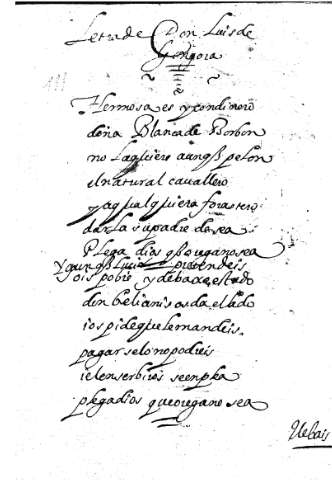 Letra de Don Luis de
Gongora
Hermosa es y con dinero
doña Blanca de Borbon
no la quiero aunqß pelon
el natural cavallero
y aqualquiera forastero
darla su padre desea
Plega dios qß oregano sea
y aunqß Lucio pretendeis
sois pobre y de baxo estado
don belianis os da el lado
i os pide que le mandeis
pagarselo no podreis
i el en serbiros se emplea
plega dios que oregano sea